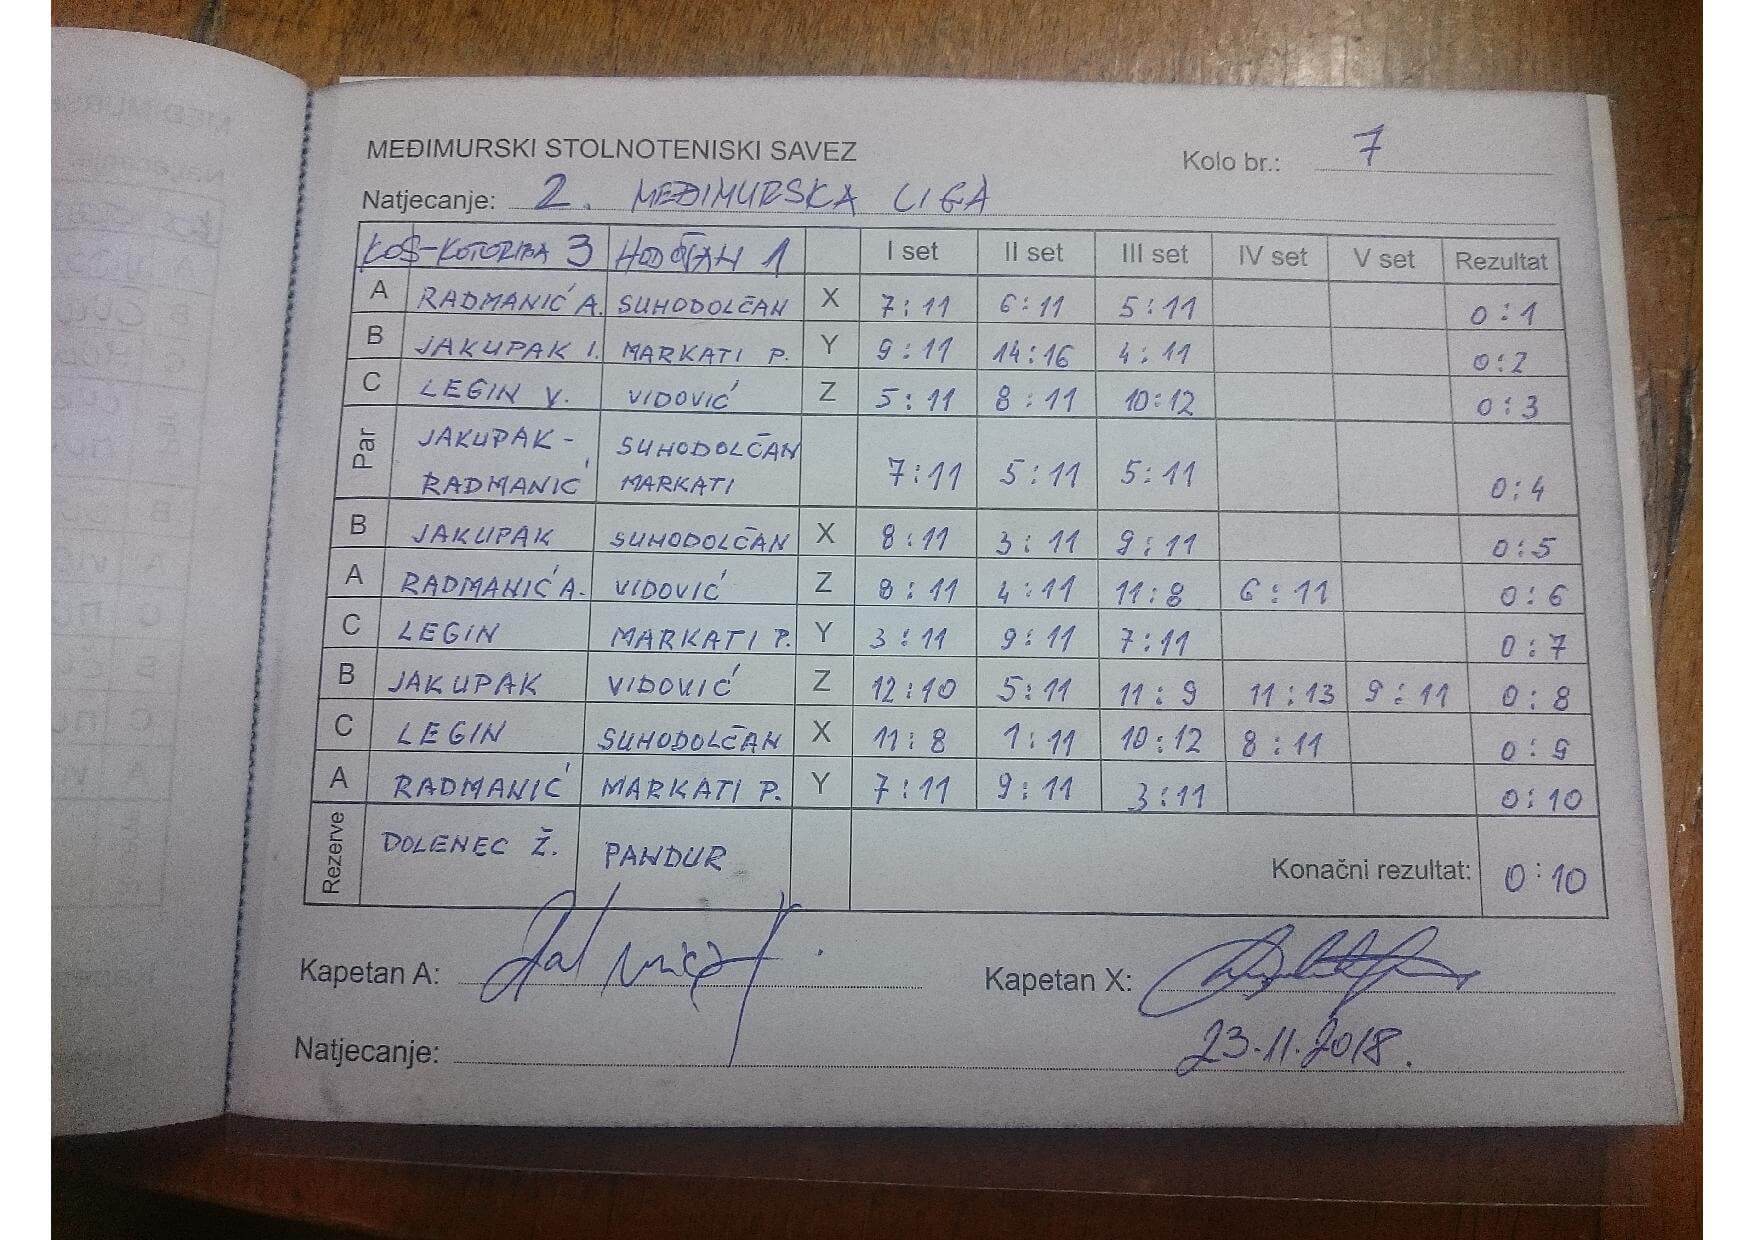 MEĐIMURSKI STOLNOTENISKI SAVEZ
Kolo br.: 7
Natjecanje: 2. MEĐIMURSKA LIGA
KOŠ-KOTORIBA 3 HODOŠAN 1 I set II set III set IV set V set Rezultat
A RADMANIĆ A. SUHODOLČAN X 7:11 6:11 5:11 0:1
B JAKUPAK I. MARKATI P. Y 9:11 14:16 4:11 0:2
C LEGIN V. VIDOVIĆ Z 5:11 8:11 10:12 0:3
Par JAKUPAK - SUHODOLČAN
RADMANIĆ MARKATI 7:11 5:11 5:11 0:4
B JAKUPAK SUHODOLČAN X 8:11 3:11 9:11 0:5
A RADMANIĆ A. VIDOVIĆ Z 8:11 4:11 11:8 6:11 0:6
C LEGIN MARKATI P. Y 3:11 9:11 7:11 0:7
B JAKUPAK VIDOVIĆ Z 12:10 5:11 11:9 11:13 9:11 0:8
C LEGIN SUHODOLČAN X 11:8 1:11 10:12 8:11 0:9
A RADMANIĆ MARKATI P. Y 7:11 9:11 3:11 0:10
Rezerve DOLENEC Ž. PANDUR Konačni rezultat: 0:10
Kapetan A: Kapetan X:
Natjecanje: 23.11.2018.